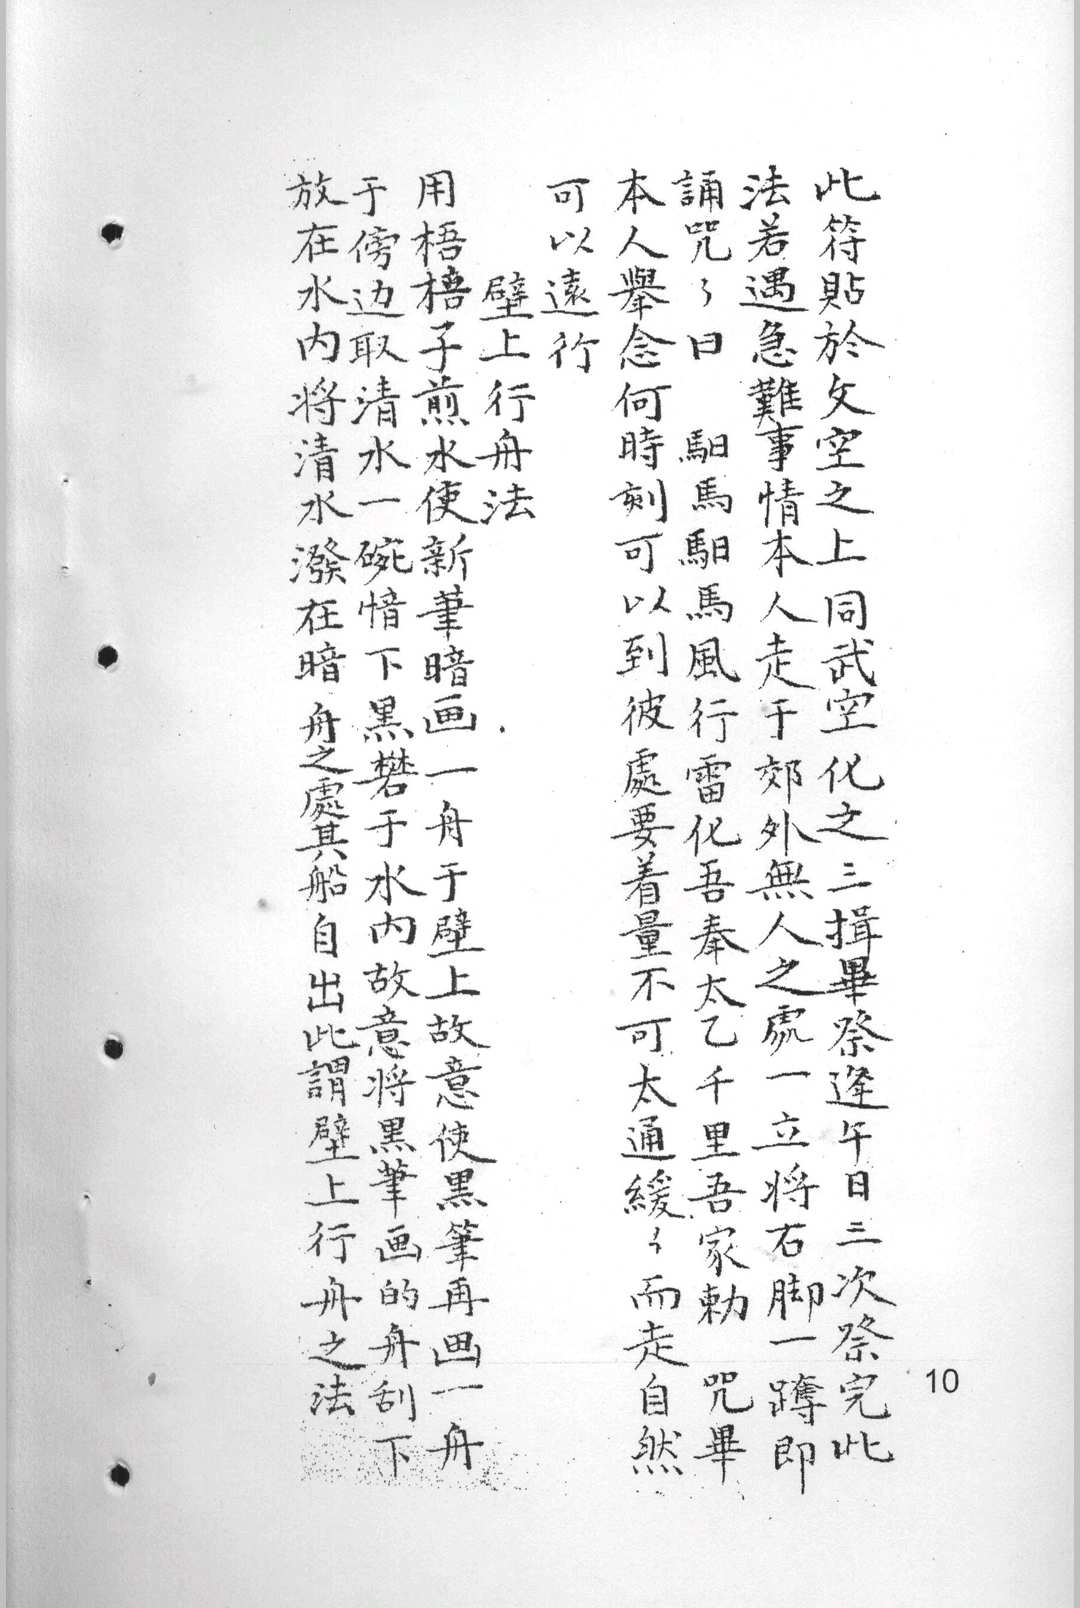 此符貼於文空之上同武空化之三揖畢祭逢午日三次祭完此
法若遇急難事情本人走于郊外無人之處一立將右脚一蹲即
誦咒々曰 馹馬馹馬風行雷化吾奉太乙千里吾家勅 咒畢
本人舉念何時刻可以到彼處要着量不可太通緩々而走自然
可以遠行
壁上行舟法
用梧棓子煎水使新筆暗画一舟于壁上故意使黒筆再画一舟
于傍边取清水一碗愔下黒礬于水内故意将黒筆画的舟刮下
放在水内将清水潑在暗舟之處其船自出此謂壁上行舟之法
10